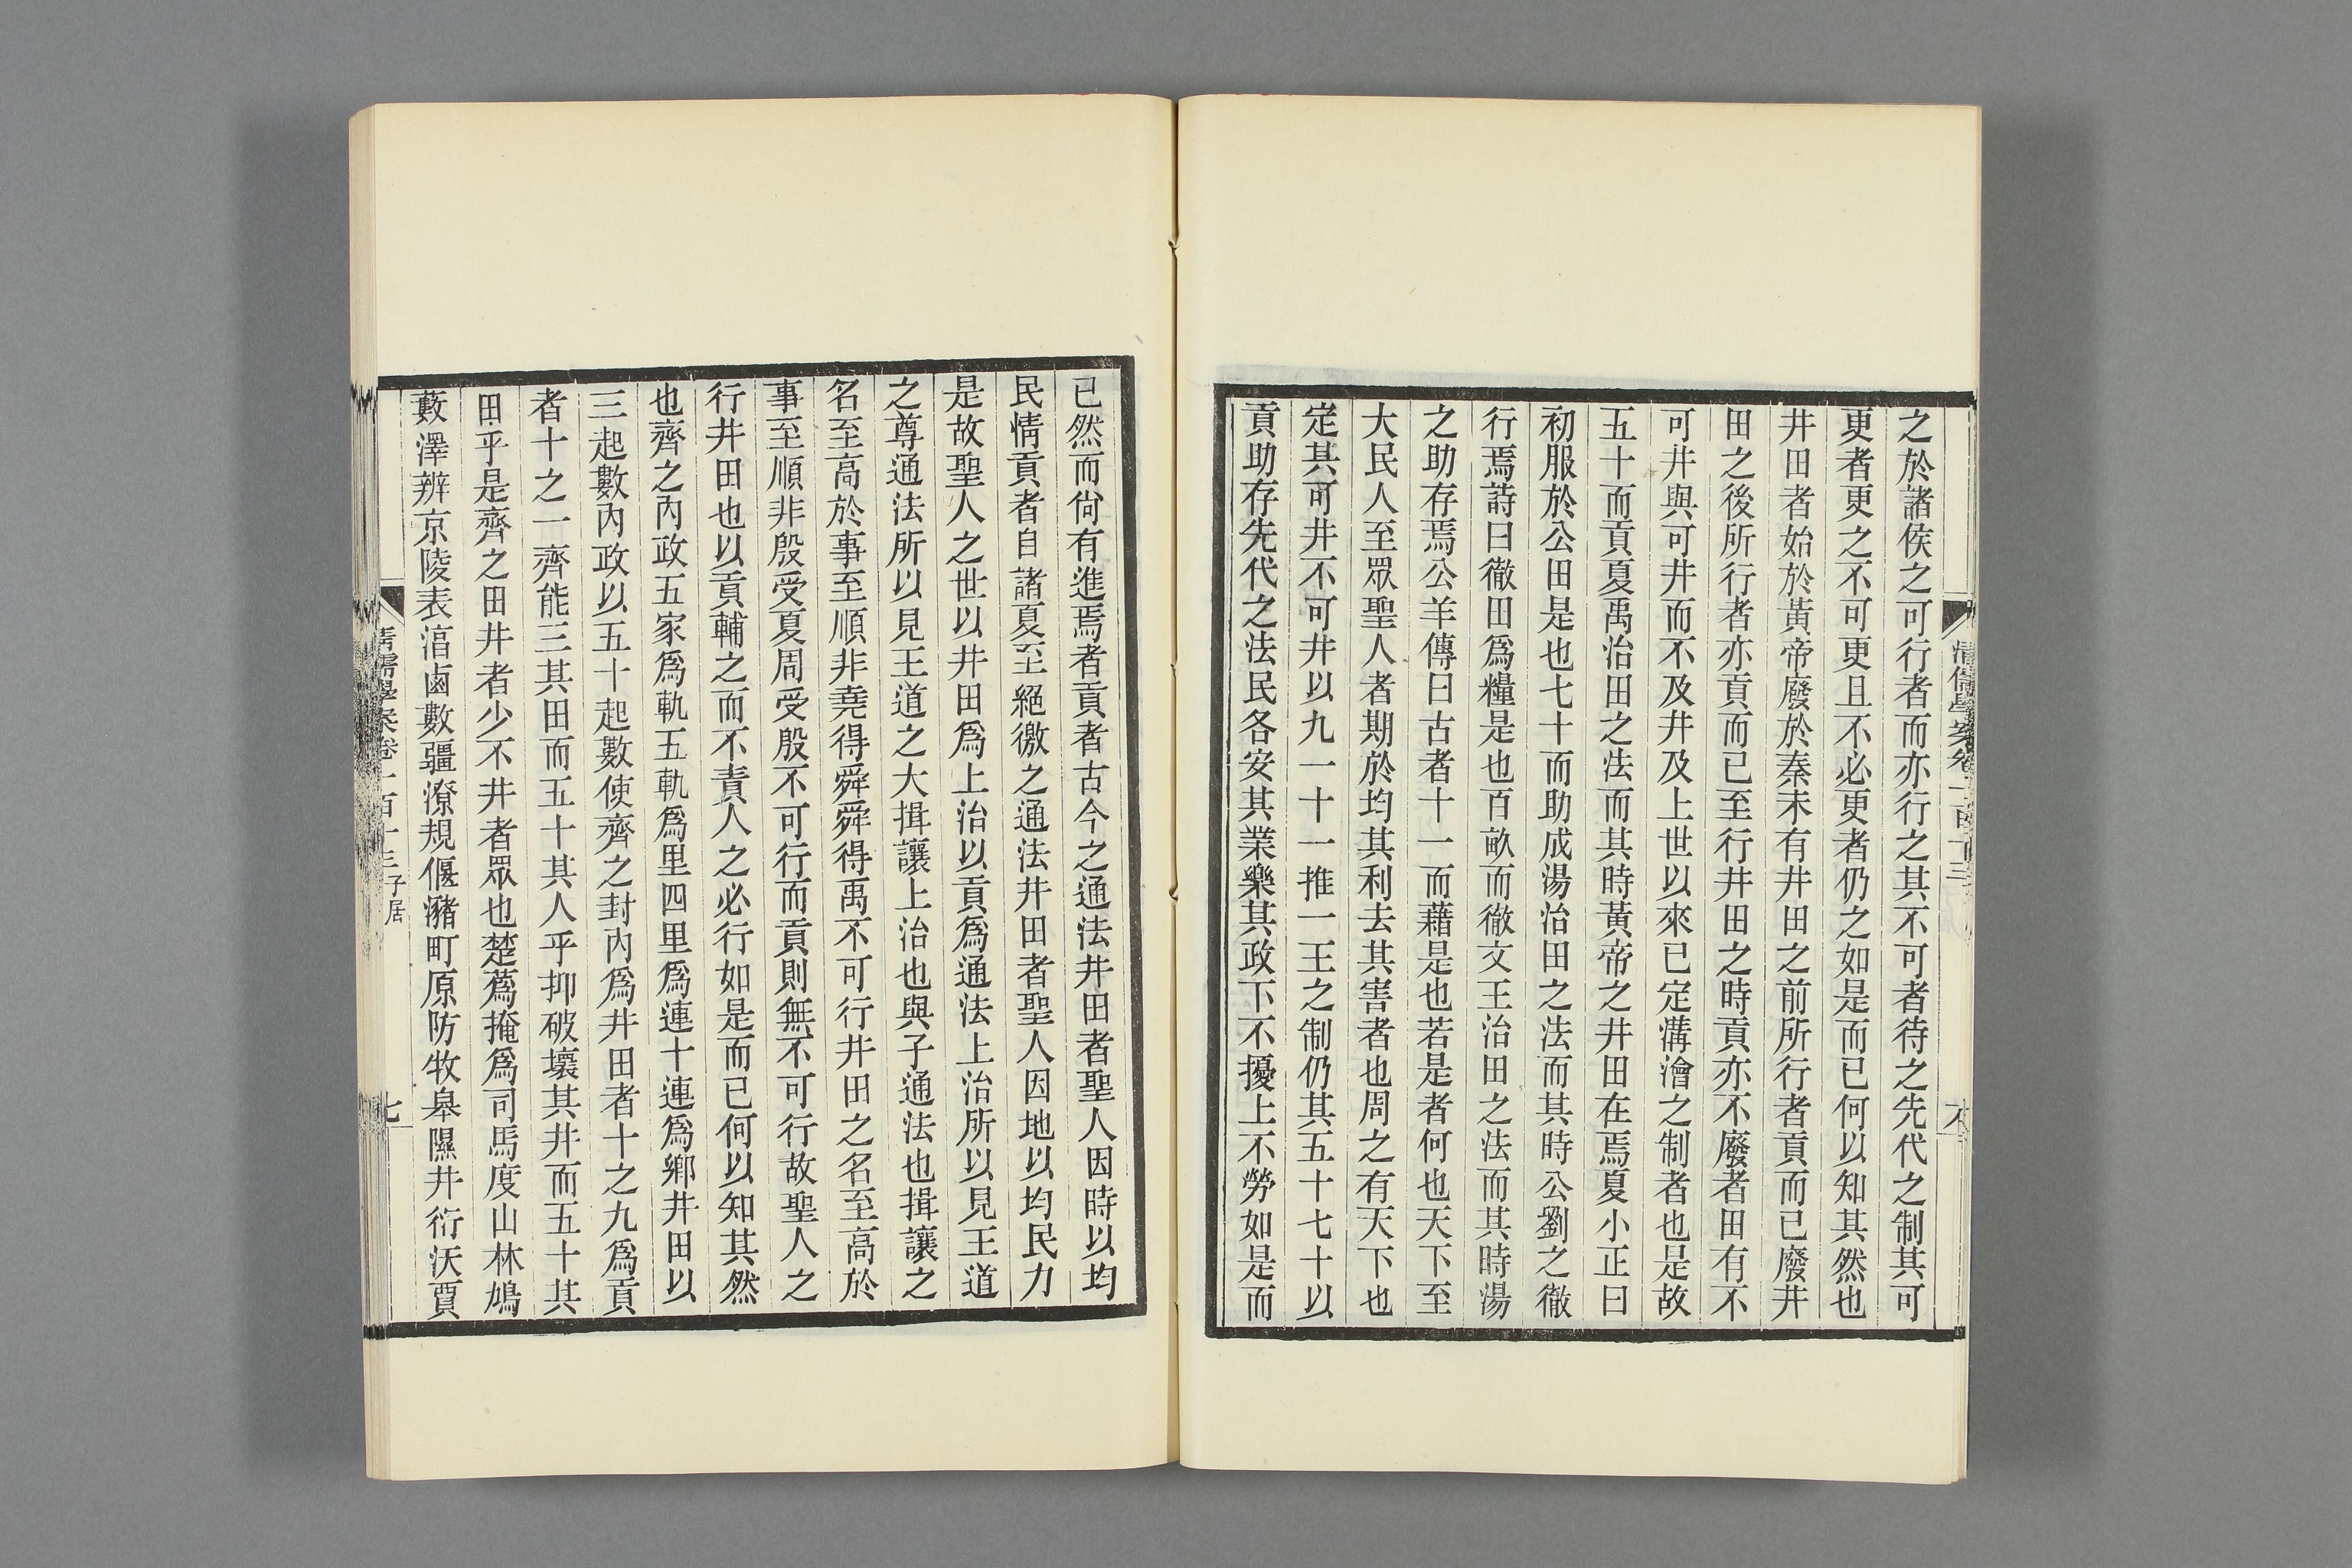 之於諸侯之可行者而亦行之其不可者待之先代之制其可
更者更之不可更且不必更者仍之如是而已何以知其然也
井田者始於黃帝廢於秦未有井田之前所行者貢而已廢井
田之後所行者亦貢而已至行井田之時貢亦不廢者田有不
可井與可井而不及井及上世以來已定溝澮之制者也是故
五十而貢夏禹治田之法而其時黃帝之井田在焉夏小正曰
初服於公田是也七十而助成湯治田之法而其時公劉之徹
行焉詩曰徹田爲糧是也百畝而徹文王治田之法而其時湯
之助存焉公羊傳曰古者十一而藉是也若是者何也天下至
大民人至眾聖人者期於均其利去其害者也周之有天下也
定其可井不可井以九一十一推一王之制仍其五十七十以
貢助存先代之法民各安其業樂其政下不擾上不勞如是而
已然而尙有進焉者貢者古今之通法井田者聖人因時以均
民情貢者自諸夏至絕徼之通法井田者聖人因地以均民力
是故聖人之世以井田爲上治以貢爲通法上治所以見王道
之尊通法所以見王道之大揖讓上治也與子通法也揖讓之
名至高於事至順非堯得舜舜得禹不可行井田之名至高於
事至順非殷受夏周受殷不可行而貢則無不可行故聖人之
行井田也以貢輔之而不責人之必行如是而已何以知其然
也齊之內政五家爲軌五軌爲里四里爲連十連爲鄉井田以
三起數內政以五十起數使齊之封內爲井田者十之九爲貢
者十之一齊能三其田而五十其人乎抑破壞其井而五十其
田乎是齊之田井者少不井者眾也楚蔿掩爲司馬度山林鳩
藪澤辨京陵表淳鹵數疆潦規偃豬町原防牧皋隰井衍沃賈
清儒學案卷一百十三 子居
七